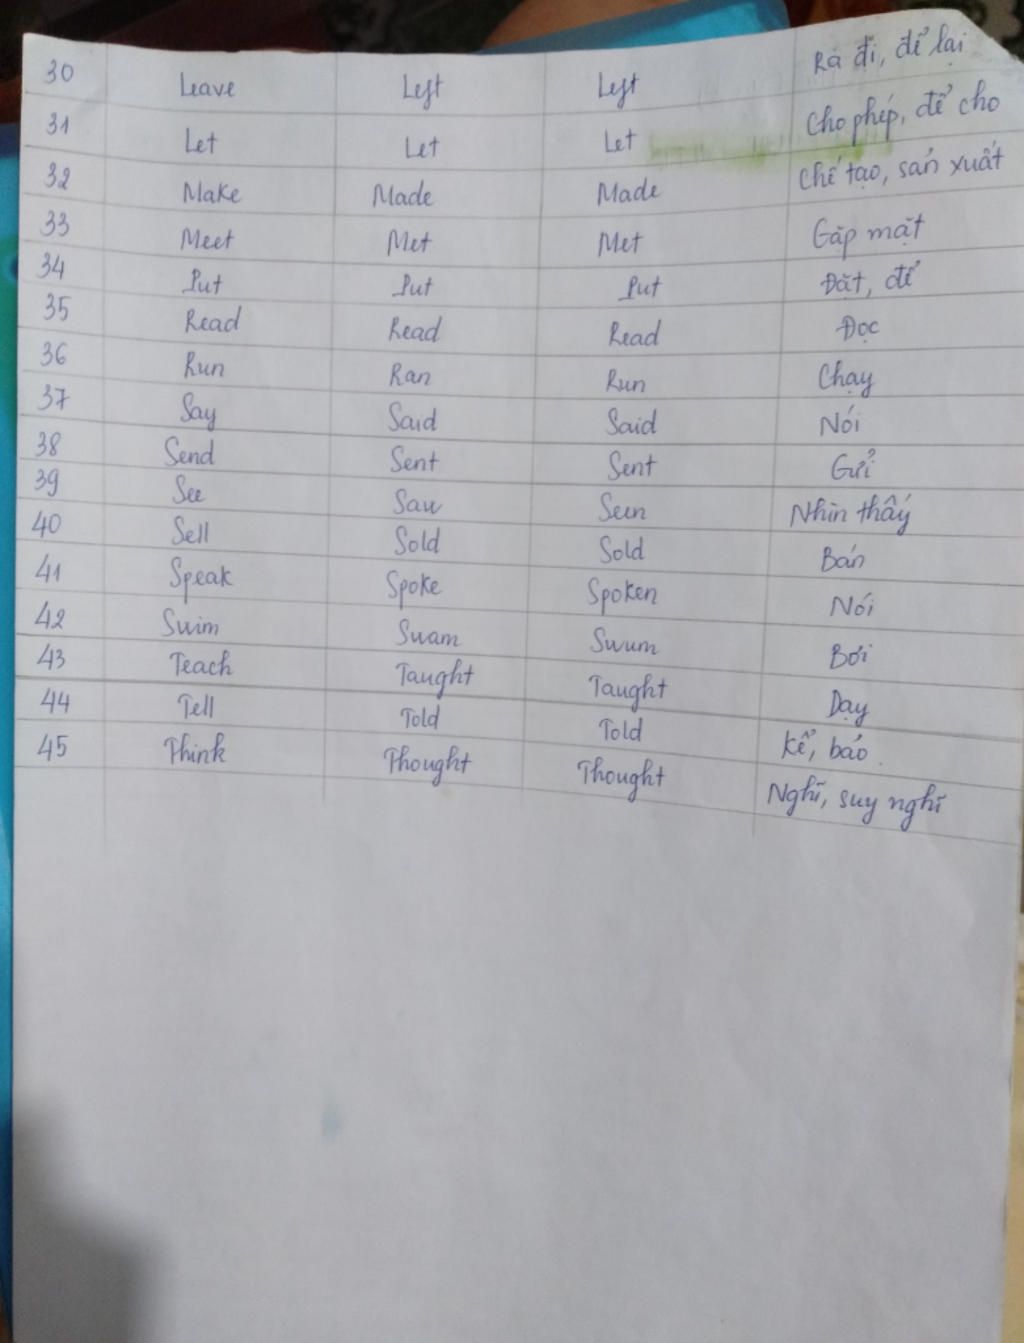 30 Leave Left Left Ra đi, để lại
31 Let Let Let Cho phép, để cho
32 Make Made Made Chế tạo, sản xuất
33 Meet Met Met Gặp mặt
34 Put Put Put Đặt, để
35 Read Read Read Đọc
36 Run Ran Run Chạy
37 Say Said Said Nói
38 Send Sent Sent Gửi
39 See Saw Seen Nhìn thấy
40 Sell Sold Sold Bán
41 Speak Spoke Spoken Nói
42 Swim Swam Swum Bơi
43 Teach Taught Taught Dạy
44 Tell Told Told Kể, bảo.
45 Think Thought Thought Nghĩ, suy nghĩ